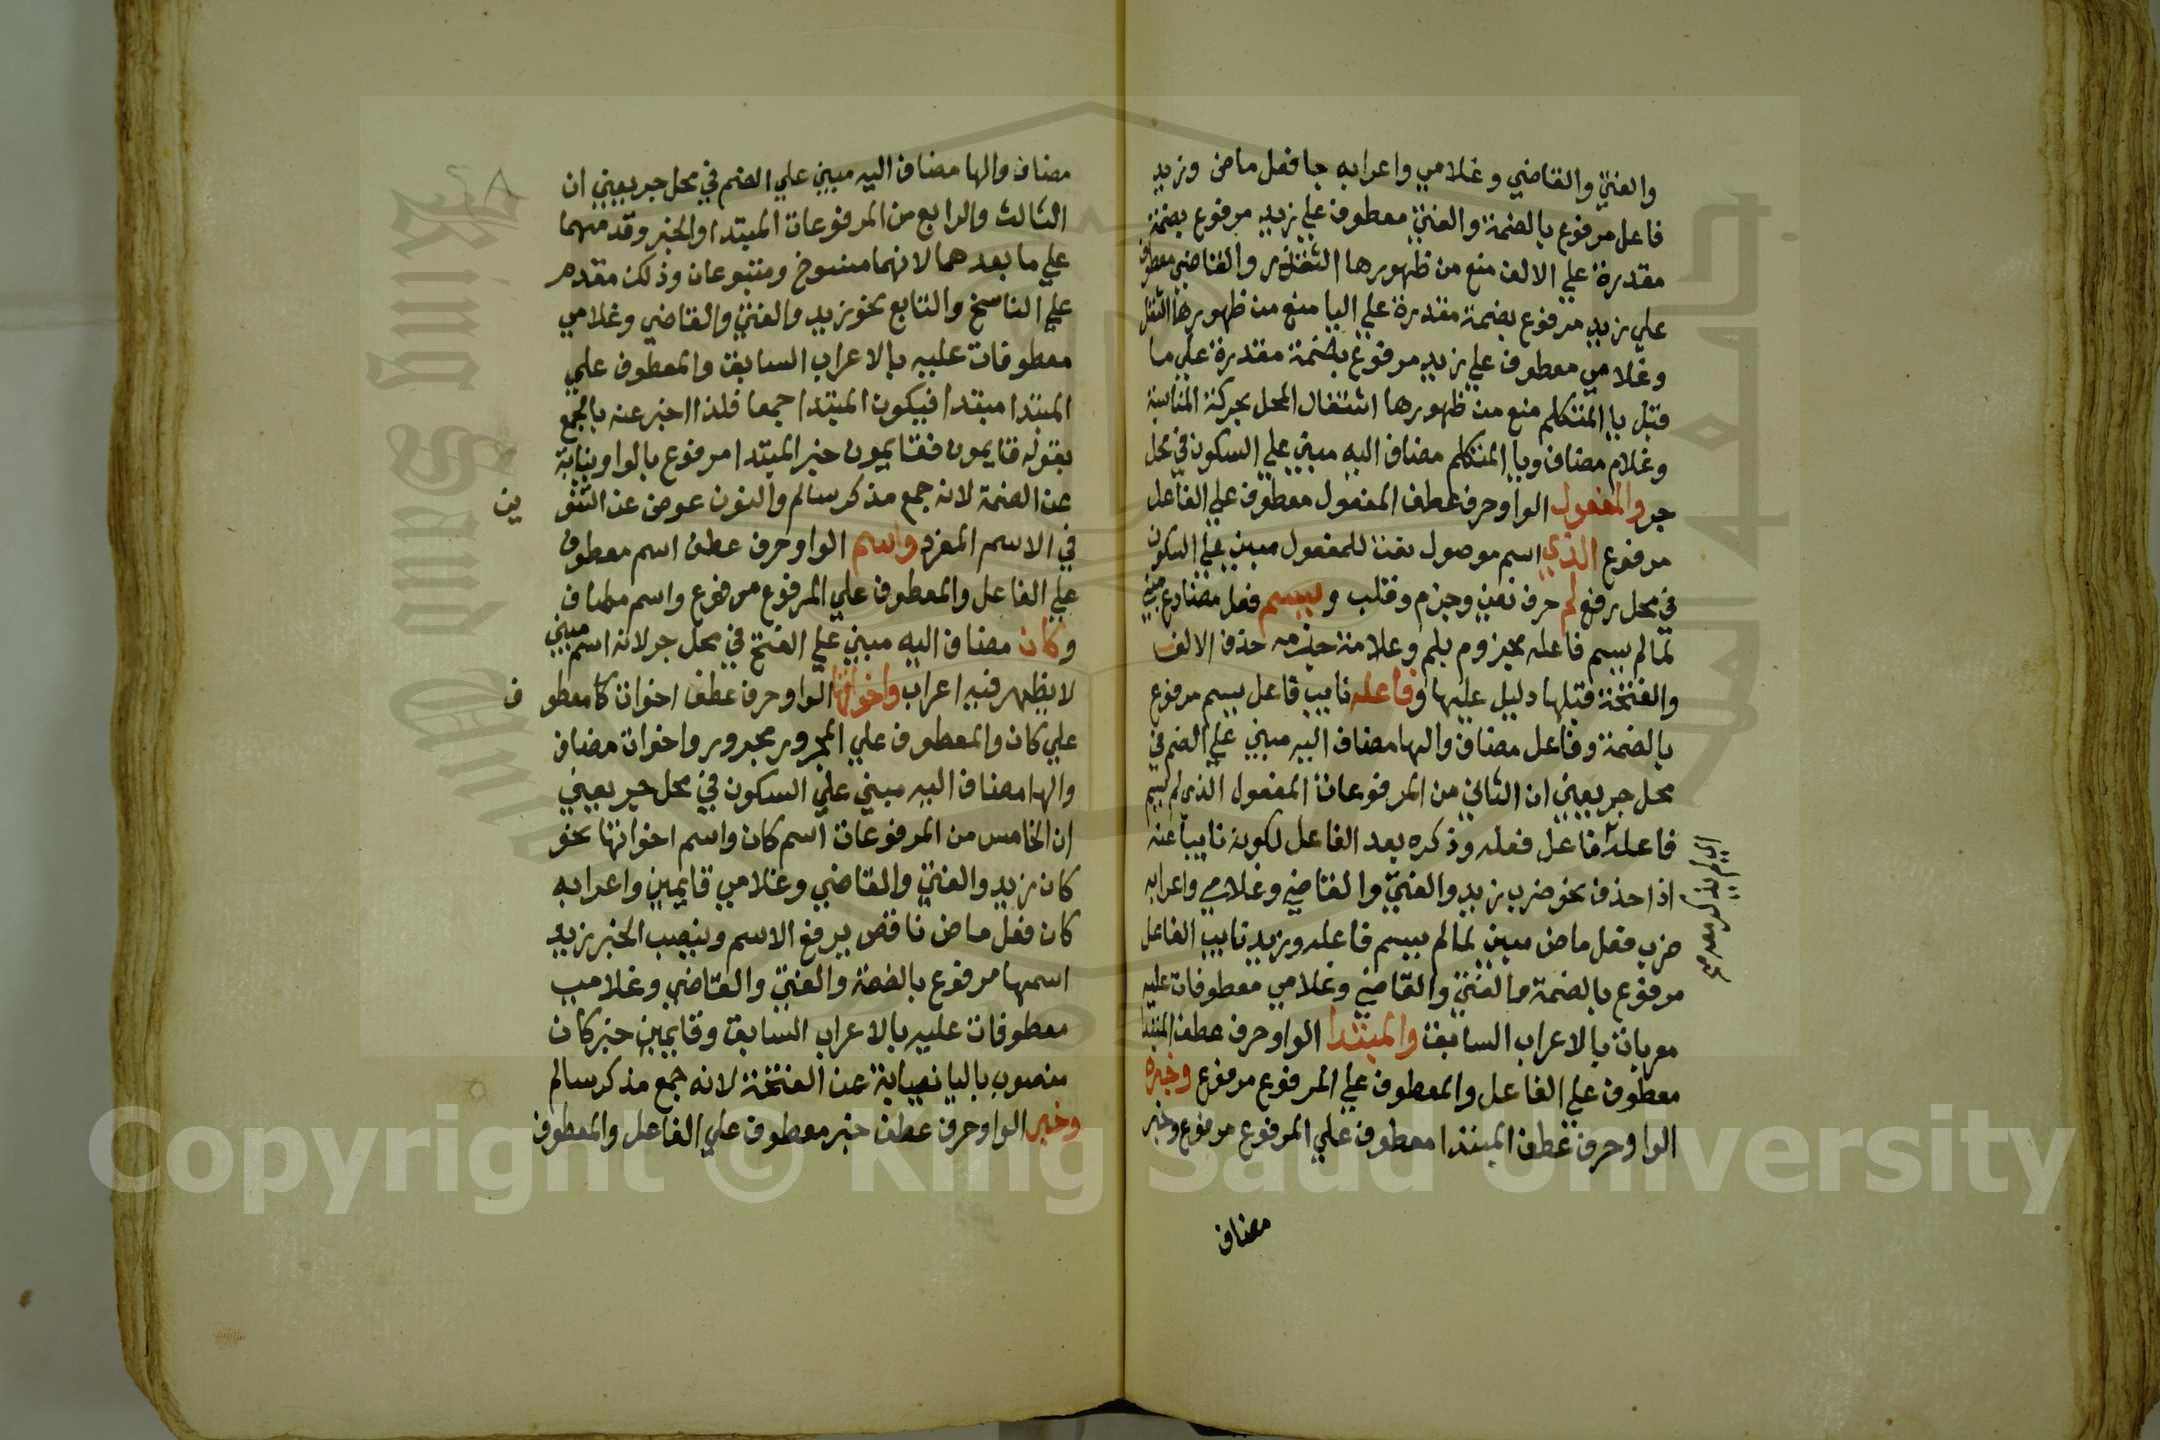 والفتي والقاضي وغلامي واعرابه جا فعل ماض وزيد
فاعل مرفوع بالضمة والفتي معطوف علي زيد مرفوع بضمة
مقدرة علي الالف منع من ظهورها التعذر والقاضي معطوف
علي زيد مرفوع بضمة مقدرة علي اليا منع من ظهورها الثقل
وغلامي معطوف علي زيد مرفوع بضمة مقدرة علي ما
قبل يا المتكلم منع من ظهورها اشتغال المحل بحركة المناسبة
وغلام مضاف ويا المتكلم مضاف اليه مبني علي السكون في محل
جر والمفعول الواو حرف عطف المفعول معطوف علي الفاعل
مرفوع الذي اسم موصول نعت للمفعول مبني علي السكون
في محل رفع لم حرف نفي وجزم وقلب ويسم فعل مضارع مبني
لما لم يسم فاعله مجزوم بلم وعلامة جزمه حذف الالف
والفتحة قبلها دليل عليها وفاعله نايب فاعل يسم مرفوع
بالضمة وفاعل مضاف والها مضاف اليه مبني علي الضم في
محل جر يعني ان الثاني من المرفوعات المفعول الذي لم يسم
فاعله فاعل فعله وذكره بعد الفاعل لكونه نايبا عنه
اذا حذف نحو ضرب زيد والفتي والقاضي وغلامي واعرابه
ضرب فعل ماض مبني لما لم يسم فاعله وزيد نايب الفاعل
مرفوع بالضمة والفتي والقاضي وغلامي معطوفات عليه
معربات بالاعراب السابق والمبتدا الواو حرف عطف المبتدا
معطوف علي الفاعل والمعطوف علي المرفوع مرفوع وخبره
الواو حرف عطف المبتدا معطوف علي المرفوع مرفوع وخبر
مضاف
مضاف والها مضاف اليه مبني علي الضم في محل جر يعني ان
الثالث والرابع من المرفوعات المبتدا والخبر وقدمهما
علي ما بعدهما لانهما منسوخ ومتبوعان وذلك مقدم
علي الناسخ والتابع نحو زيد والفتي والقاضي وغلامي
معطوفات عليه بالاعراب السابق والمعطوف علي
المبتدا مبتدا فيكون المبتدا جمعا فلذا اخبر عنه بالجمع
بقوله قايمون فقايمون خبر المبتدا مرفوع بالواو نيابة
عن الضمة لانه جمع مذكر سالم والنون عوض عن التنو ين
في الاسم المفرد واسم الواو حرف عطف اسم معطوف
علي الفاعل والمعطوف علي المرفوع مرفوع واسم مضاف
وكان مضاف اليه مبني علي الفتح في محل جر لانه اسم مبني
لا يظهر فيه اعراب واخواتها الواو حرف عطف اخوات كا معطو ف
علي كان والمعطوف علي المجرور مجرور واخوات مضاف
والها مضاف اليه مبني علي السكون في محل جر يعني
ان الخامس من المرفوعات اسم كان واسم اخواتها نحو
كان زيد والفتي والقاضي وغلامي قايمين واعرابه
كان فعل ماض ناقص يرفع الاسم وينصب الخبر زيد
اسمها مرفوع بالضمة والفتي والقاضي وغلامي
معطوفات عليه بالاعراب السابق وقايمين خبر كان
منصوب باليا نيابة عن الفتحة لانه جمع مذكر سالم
وخبر الواو حرف عطف خبر معطوف علي الفاعل والمعطوف
King Saud University
جامعة الملك سعود
Copyright © King Saud University